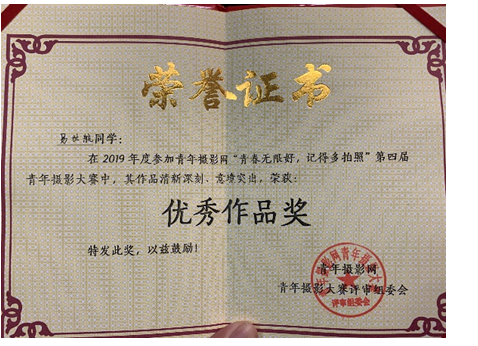 荣誉证书
易世航同学：
在 2019 年度参加青年摄影网“青春无限好，记得多拍照”第四届
青年摄影大赛中，其作品清新深刻、意境突出，荣获：
优秀作品奖
特发此奖，以兹鼓励！
青年摄影网
青年摄影大赛评审组委会
评审组委会